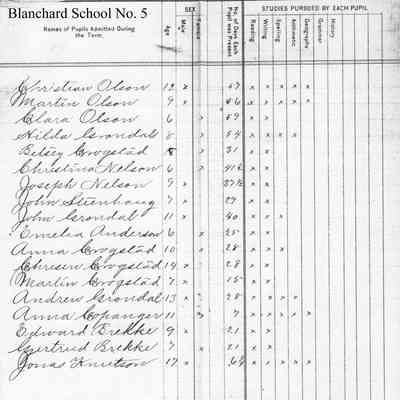 Blanchard School No. 5
Names of Pupils Admitted During the Term. Age SEX Male Female No. of Days Each Pupil was Present STUDIES PURSUED BY EACH PUPIL Reading Writing Spelling Arithmetic Geography Grammar History
Christian Olson 12 x 47 x x x x x
Martin Olson 9 x 46 x x x x x
Clara Olson 6 x 69 x x
Hilda Grondal 8 x 54 x x x x
Betsey Crogstad 8 x 31 x x
Christina Nelson 6 x 41½ x x
Joseph Nelson 9 x 37½ x x
John Steenhaug 7 x 29 x x
John Grondal 11 x 40 x x x
Emelia Anderson 6 x 25 x x
Anna Crogstad 10 x 28 x x x
Chresen Crogstad 14 x 28 x x
Martin Crogstad 7 x 15 x x
Andrew Grondal 13 x 28 x x x x
Anna Copanger 11 x 7 x x x x x
Edward Brekke 9 x 21 x x
Gertrud Brekke 7 x 21 x x
Jonas Knutson 17 x x x x x x